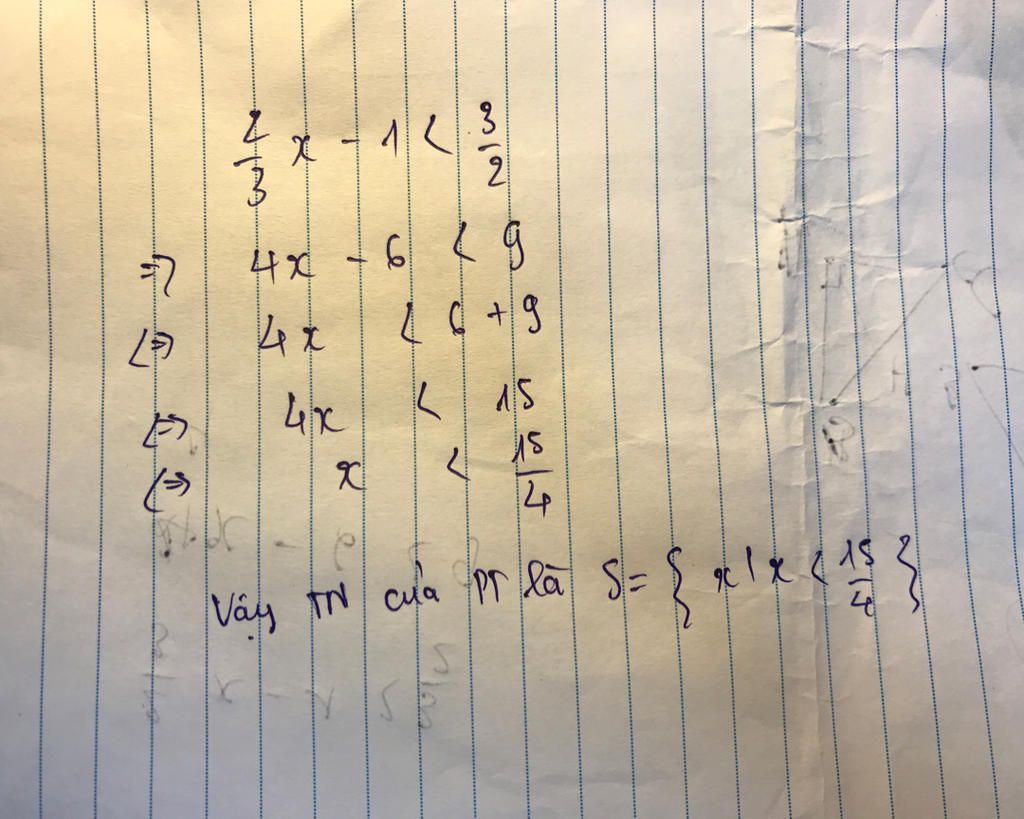 2/3 x - 1 < 3/2
=> 4x - 6 < 9
<=> 4x < 6 + 9
<=> 4x < 15
<=> x < 15/4
Vậy TN của PT là S = { x | x < 15/4 }